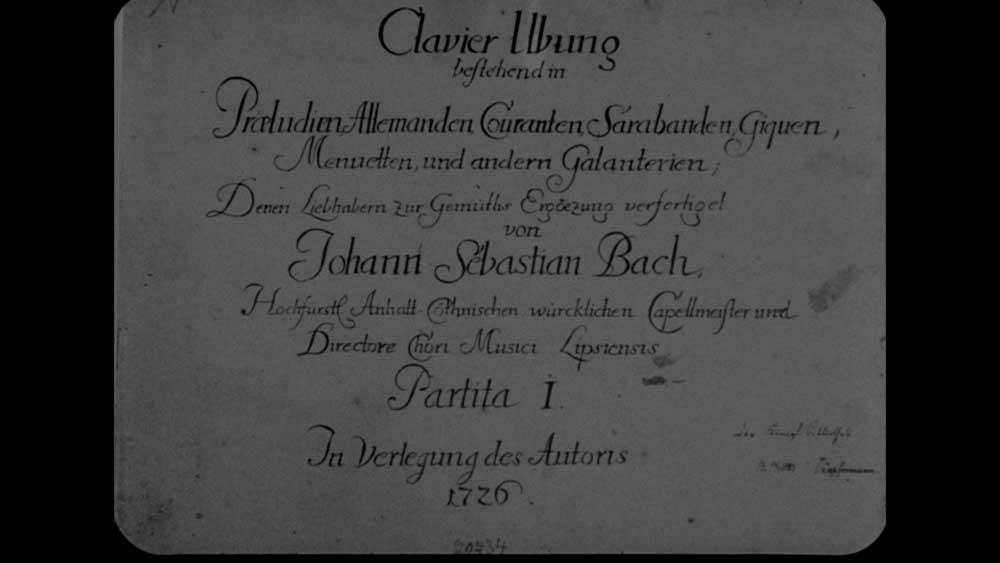 Clavier Ubung
bestehend in
Præludien, Allemanden, Couranten, Sarabanden, Giquen,
Menuetten, und andern Galanterien;
Denen Liebhabern zur Gemüths Ergoezung verfertiget
von
Johann Sebastian Bach,
Hochfürstl Anhalt-Cöthnischen würcklichen Capellmeister und
Directore Chori Musici Lipsiensis
Partita I.
In Verlegung des Autoris
1726.
20434